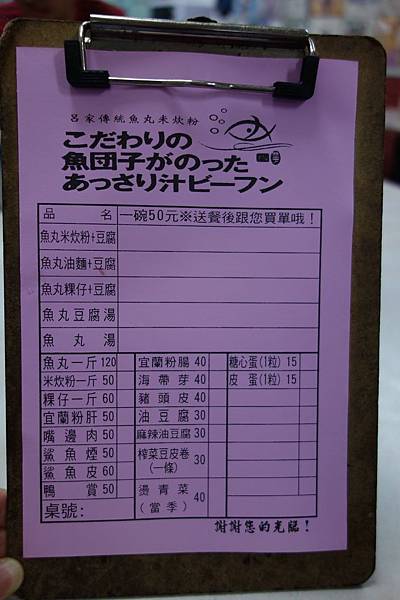 呂家傳統魚丸米炊粉
こだわりの
魚団子がのった
あっさり汁ビーフン
品名 一碗50元※送餐後跟您買單哦！
魚丸米炊粉+豆腐
魚丸油麵+豆腐
魚丸粿仔+豆腐
魚丸豆腐湯
魚丸湯
魚丸一斤 120 宜蘭粉腸 40 糖心蛋(1粒) 15
米炊粉一斤 50 海帶芽 40 皮蛋(1粒) 15
粿仔一斤 60 豬頭皮 40
宜蘭粉肝 50 油豆腐 30
嘴邊肉 50 麻辣油豆腐 30
鯊魚煙 50 榨菜豆皮卷(一條) 30
鯊魚皮 60
鴨賞 50 燙青菜(當季) 40
桌號:
謝謝您的光臨！